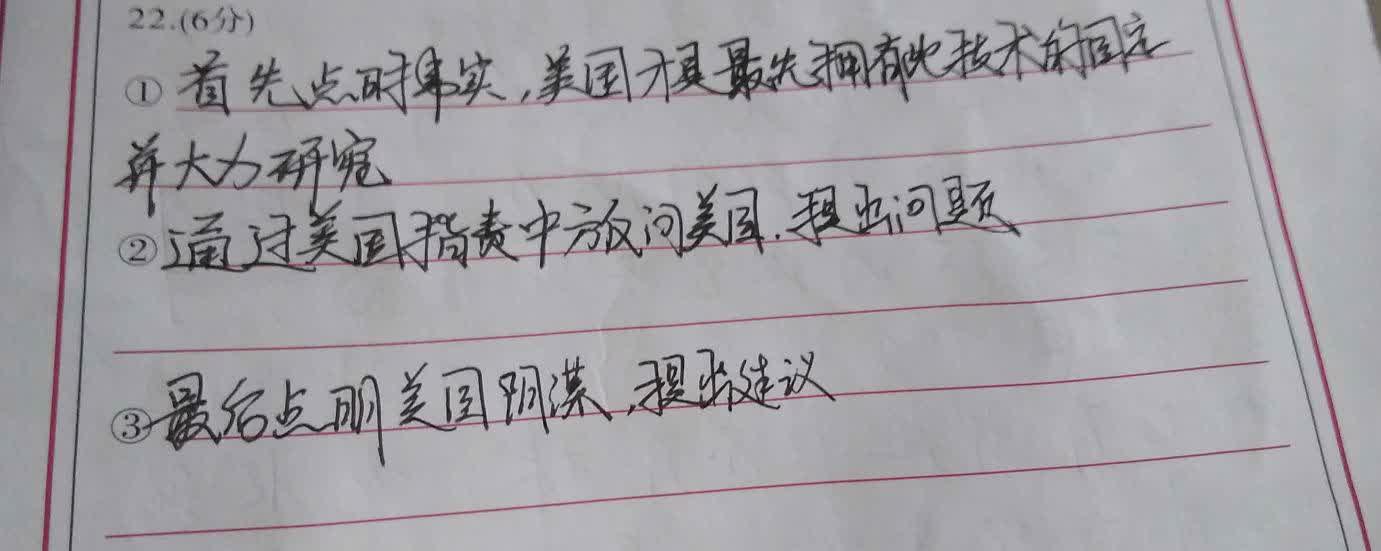 22.(6分)
① 首先点明事实,美国才是最先拥有此技术的国家
并大力研究
②通过美国指责中方反问美国.提出问题
③最后点明美国阴谋,提出建议